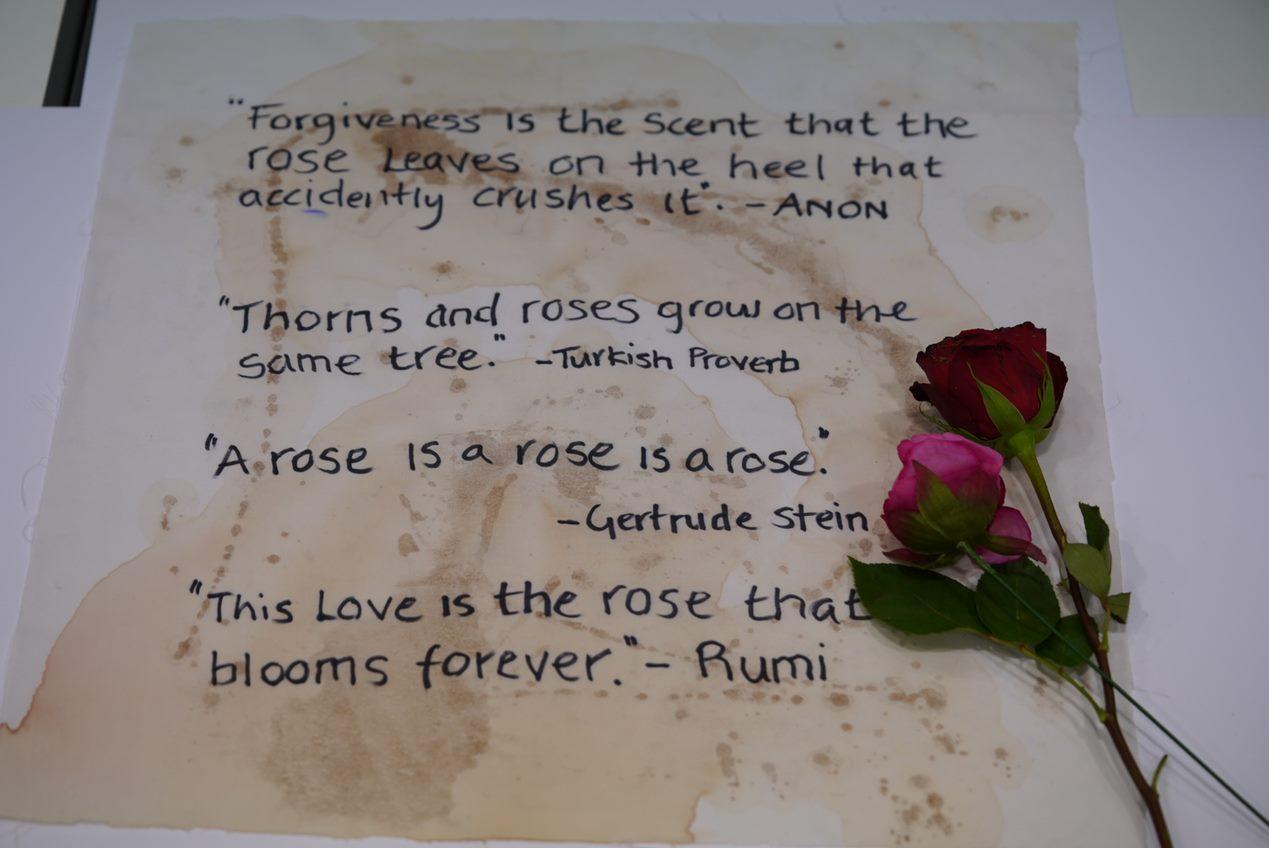 "Forgiveness is the scent that the
rose leaves on the heel that
accidently crushes it". - ANON
"Thorns and roses grow on the
same tree." - Turkish Proverb
"A rose is a rose is a rose."
- Gertrude Stein
"This Love is the rose that
blooms forever." - Rumi